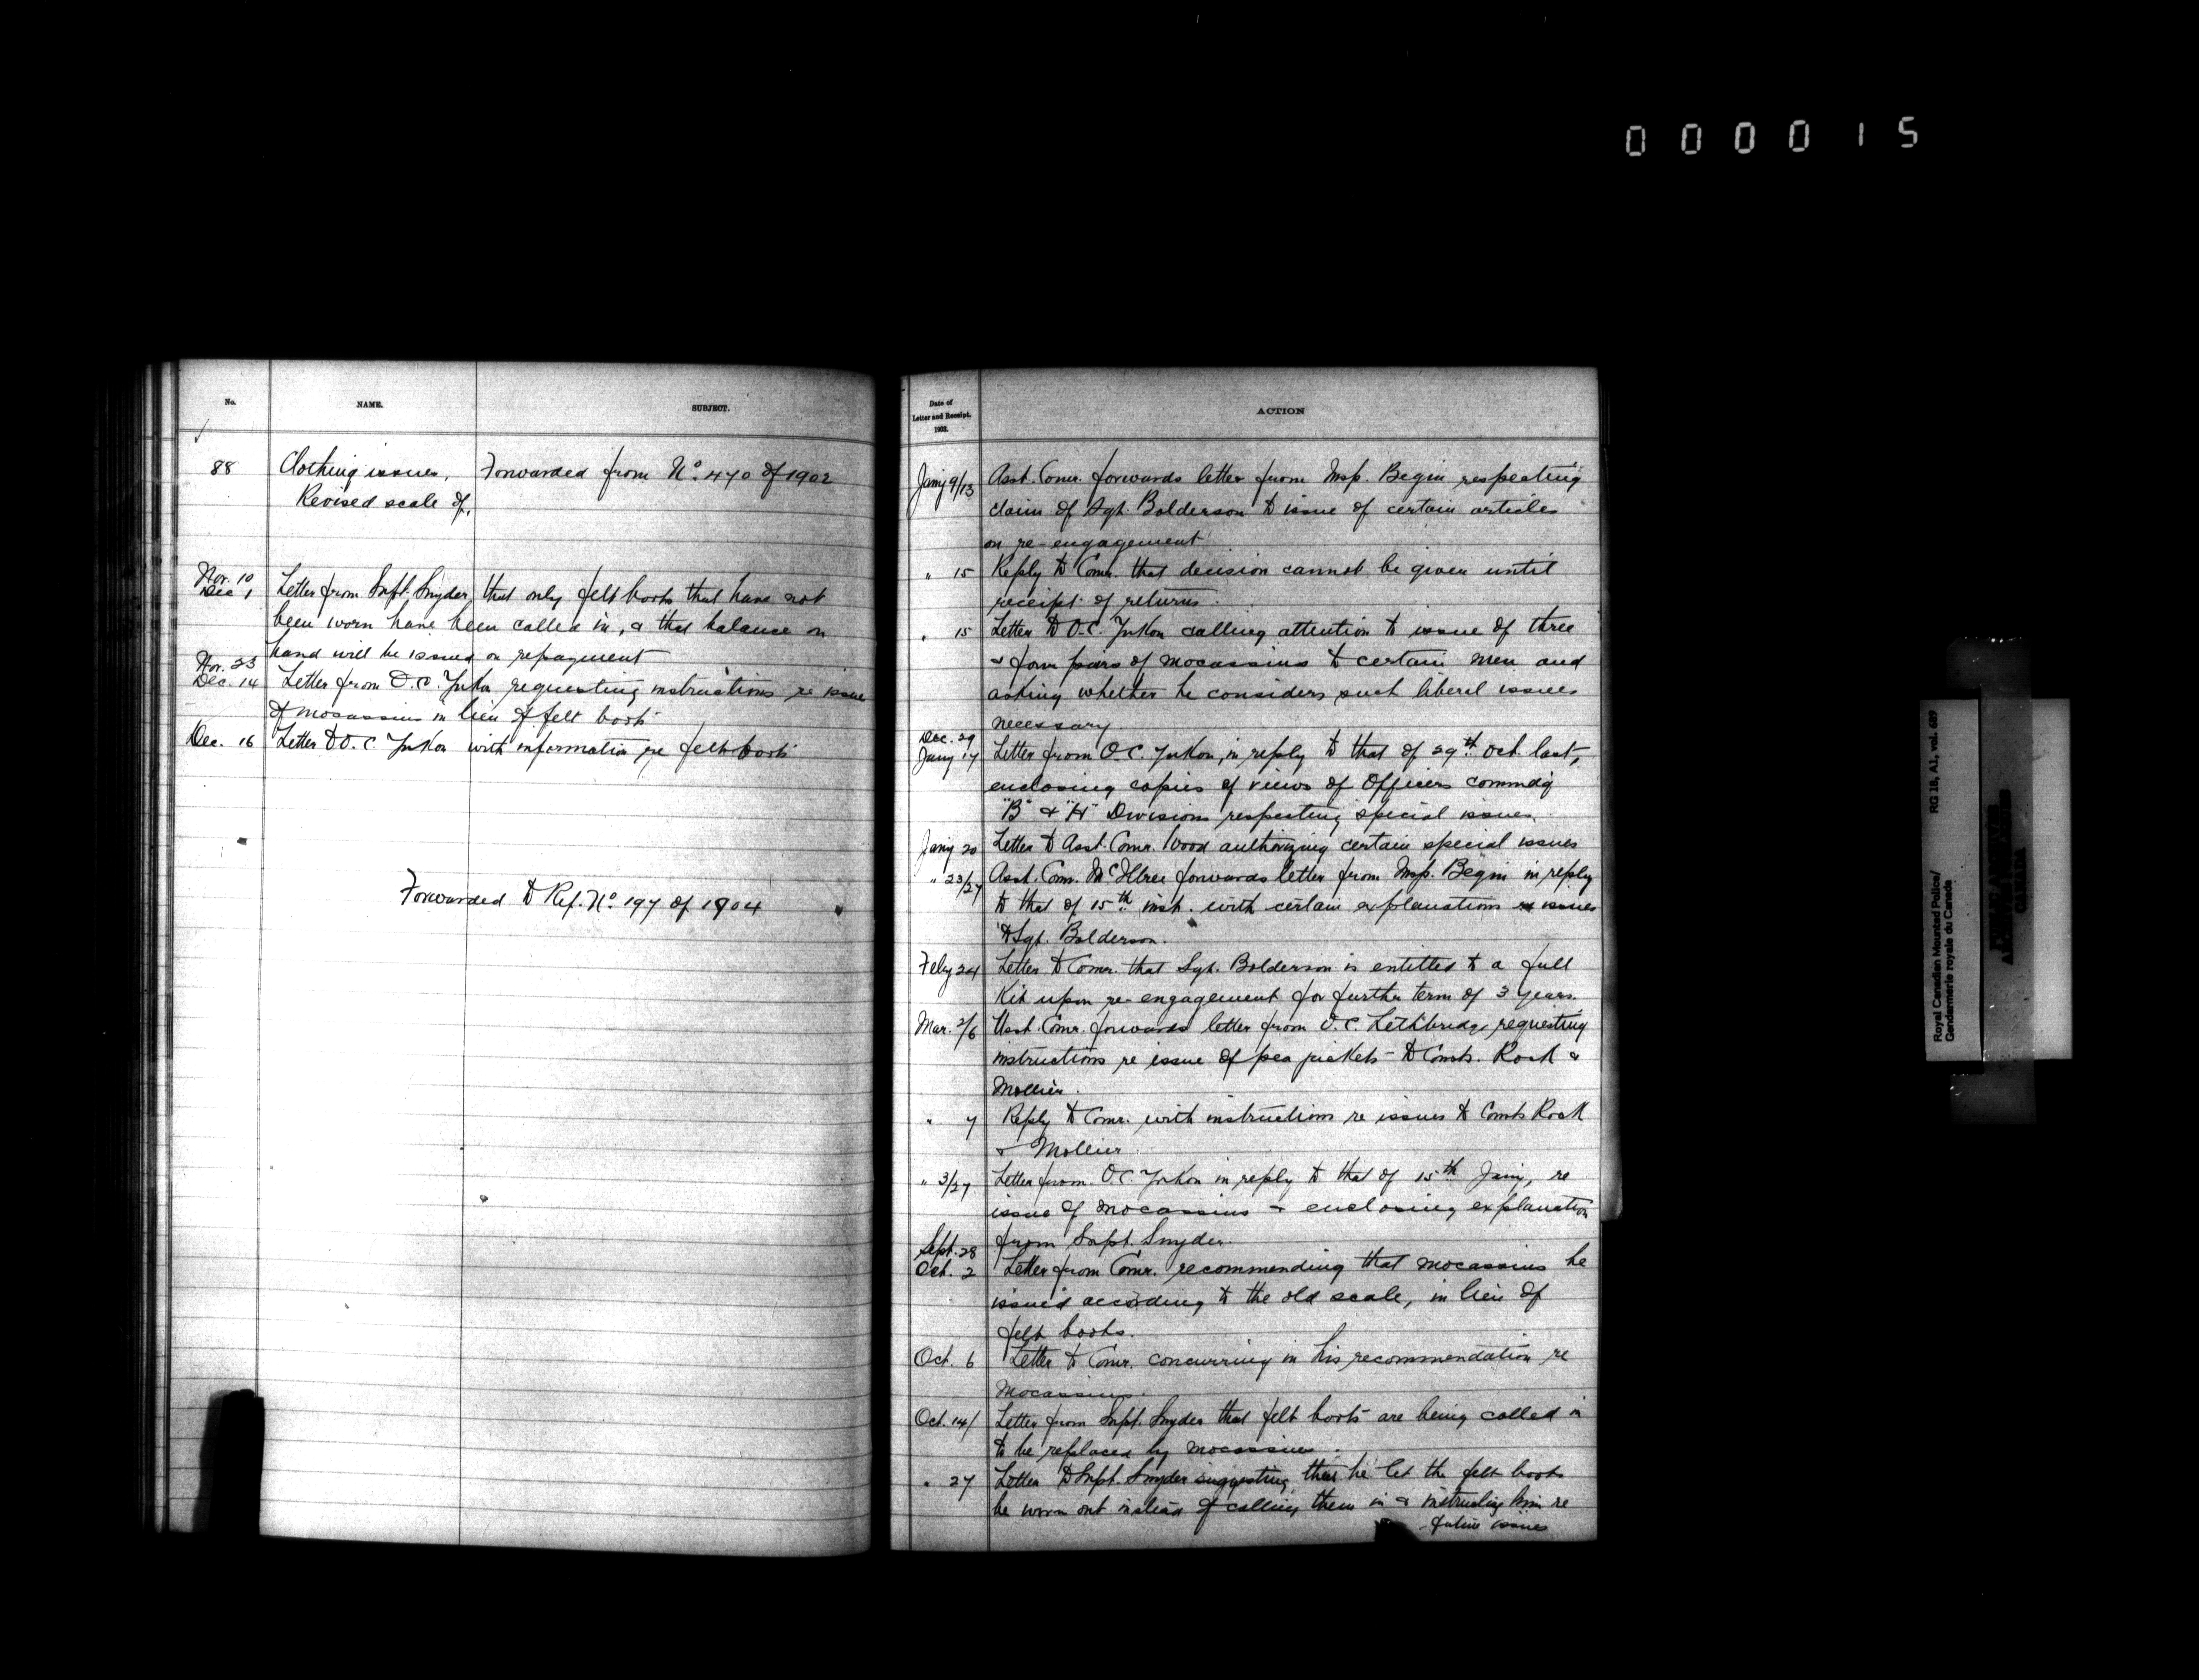 0 0 0 0 1 5
No.
NAME.
SUBJECT.
88
Clothing issues,
Revised scale of,
Forwarded from No. 470 of 1902
Nov. 10
Dec 1
Letter from Supt. Snyder, that only felt boots that have not
been worn have been called in, & that balance on
hand will be issued on repayment
Nov. 23
Dec. 14
Letter from O.C. Yukon requesting instructions re issue
of mocassins in lieu of felt boots
Dec. 16
Letter to O.C. Yukon with information re felt boots
Forwarded to Ref. No. 197 of 1904
Date of
Letter and Receipt.
1903.
ACTION
Jany 9/13
Asst. Comr. forwards letter from Insp. Begin respecting
claim of Sgt. Bolderson to issue of certain articles
on re-engagement
" 15
Reply to Comr. that decision cannot be given until
receipt of returns.
" 15
Letter to O.C. Yukon calling attention to issue of three
& four pairs of mocassins to certain men and
asking whether he considers such liberal issues
necessary
Dec. 29
Jany 17
Letter from O.C. Yukon, in reply to that of 29th Oct. last,
enclosing copies of views of Officers commdg
"B" & "H" Divisions respecting special issues.
Jany 20
Letter to Asst. Comr. Wood authorizing certain special issues
" 23/27
Asst. Comr. McIllree forwards letter from Insp. Begin in reply
to that of 15th inst. with certain explanations re issues
to Sgt. Bolderson.
Feby 24
Letter to Comr. that Sgt. Bolderson is entitled to a full
Kit upon re-engagement for further term of 3 years.
Mar. 2/6
Asst. Comr. forwards letter from O.C. Lethbridge requesting
instructions re issue of pea jackets to Consts. Rook &
Mollier.
" 7
Reply to Comr. with instructions re issues to Consts Rook
& Mollier
" 3/27
Letter from O.C. Yukon in reply to that of 15th Jany, re
issue of mocassins & enclosing explanation
from Supt. Snyder.
Sept. 28
Oct. 2
Letter from Comr. recommending that mocassins be
issued according to the old scale, in lieu of
felt boots.
Oct. 6
Letter to Comr. concurring in his recommendation re
Mocassins.
Oct. 14/
Letter from Supt. Snyder that felt boots are being called in
to be replaced by mocassins.
" 27
Letter to Supt. Snyder suggesting that he let the felt boots
be worn out instead of calling them in & instructing him re
future issues
Royal Canadian Mounted Police/
Gendarmerie royale du Canada
RG 18, A1, vol. 689